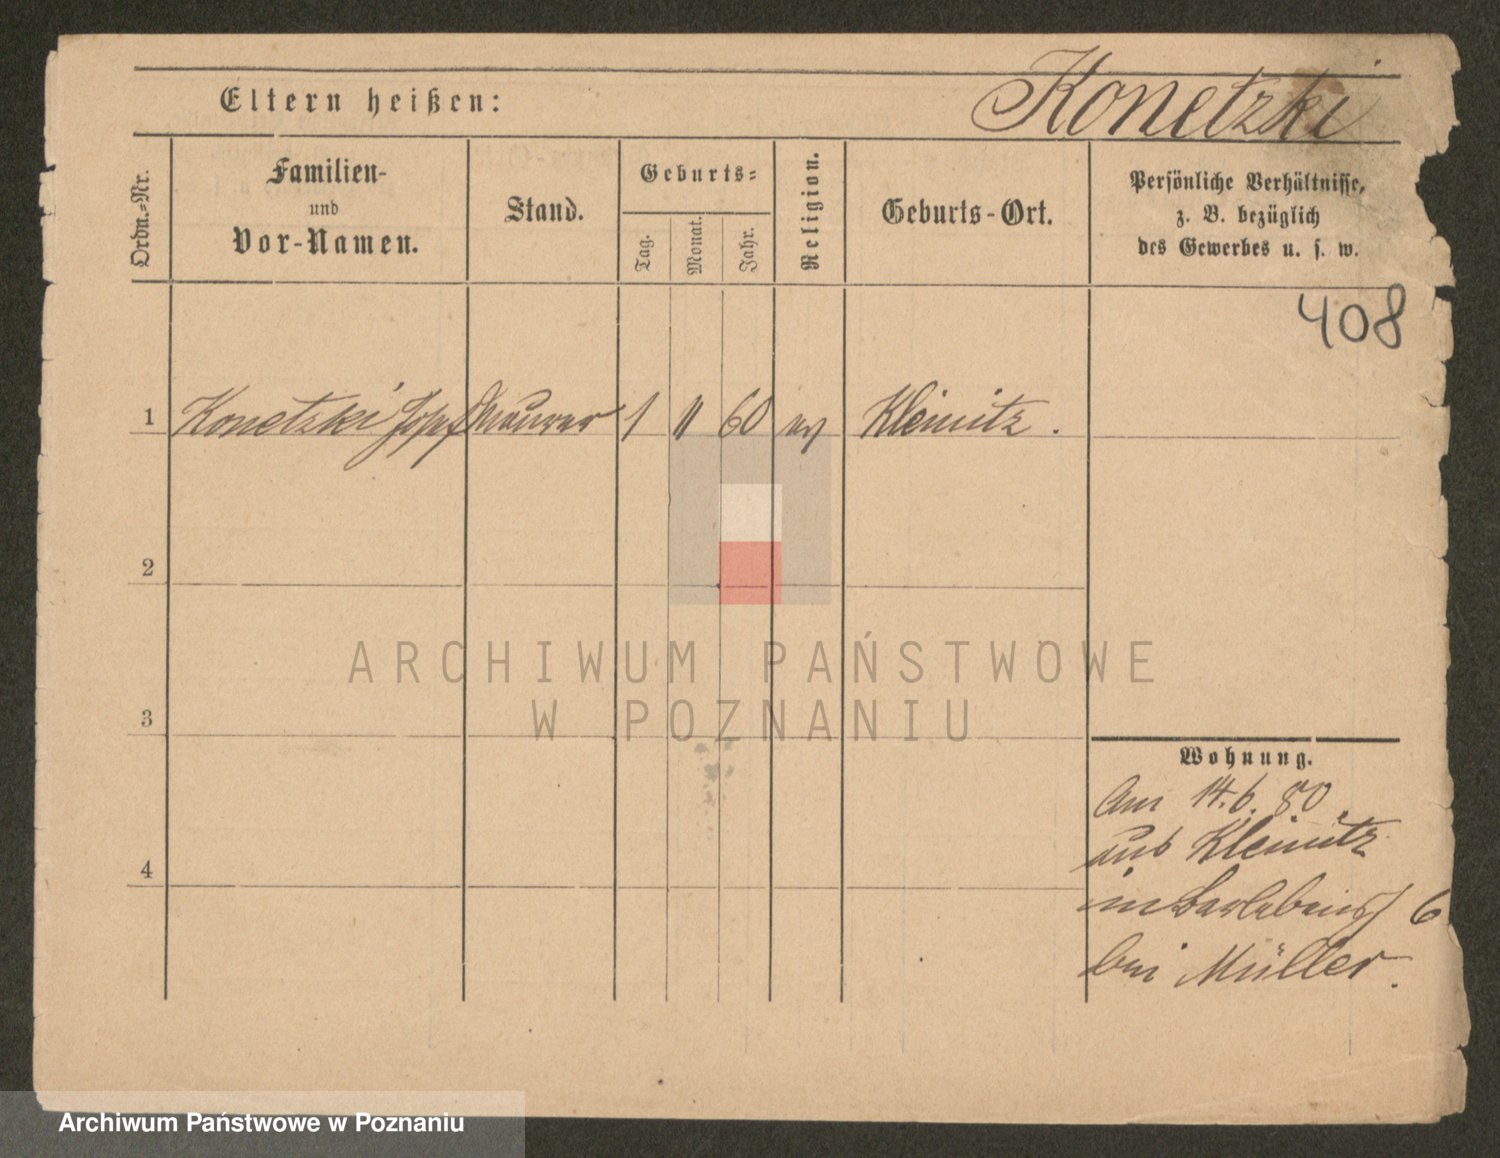 Konetzki
Eltern heißen:
Ordn.=Nr.
Familien-
und
Vor-Namen.
Stand.
Geburts=
Tag.
Monat.
Jahr.
Religion.
Geburts-Ort.
Persönliche Verhältnisse,
z. B. bezüglich
des Gewerbes u. s. w.
408
1 Konetzki Josef Maurer 1 11 60 ev Kleinitz.
2
3
4
Wohnung.
Am 14.6.80
aus Kleinitz
in 6
bei Müller.
ARCHIWUM PAŃSTWOWE
W POZNANIU
Archiwum Państwowe w Poznaniu